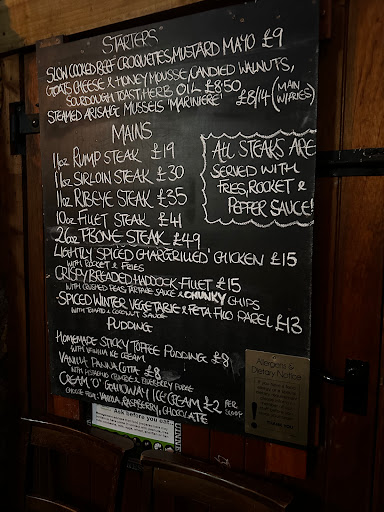 STARTERS
SLOW COOKED BEEF CROQUETTES, MUSTARD MAYO £9
GOATS CHEESE & HONEY MOUSSE, CANDIED WALNUTS,
SOURDOUGH TOAST, HERB OIL £8.50
STEAMED ARISAIG MUSSELS 'MARINIERE' £8/14 (MAIN W/FRIES)
MAINS
11oz RUMP STEAK £19
11oz SIRLOIN STEAK £30
11oz RIBEYE STEAK £35
10oz FILLET STEAK £41
26oz TBONE STEAK £49
ALL STEAKS ARE
SERVED WITH
FRIES, ROCKET &
PEPPER SAUCE!
LIGHTLY SPICED CHARGRILLED CHICKEN £15
WITH ROCKET & FRIES
CRISPY BREADED HADDOCK FILLET £15
WITH CRUSHED PEAS, TARTARE SAUCE & CHUNKY CHIPS
SPICED WINTER VEGETABLE & FETA FILO PARCEL £13
WITH TOMATO & COCONUT SAUCE
PUDDING
HOMEMADE STICKY TOFFEE PUDDING £8
WITH VANILLA ICE CREAM
VANILLA PANNA COTTA £8
CREAM 'O' GALLOWAY ICE CREAM £2 PER SCOOP
CHOOSE FROM: VANILLA, RASPBERRY, CHOCOLATE
Allergens &
Dietary Notice
Ask before you eat